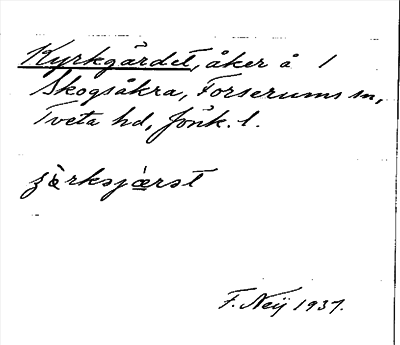 Kyrkgärdet, åker å 1
Skogsåkra, Forserums sn,
Tveta hd, Jönk. l.
F. Neij 1937.